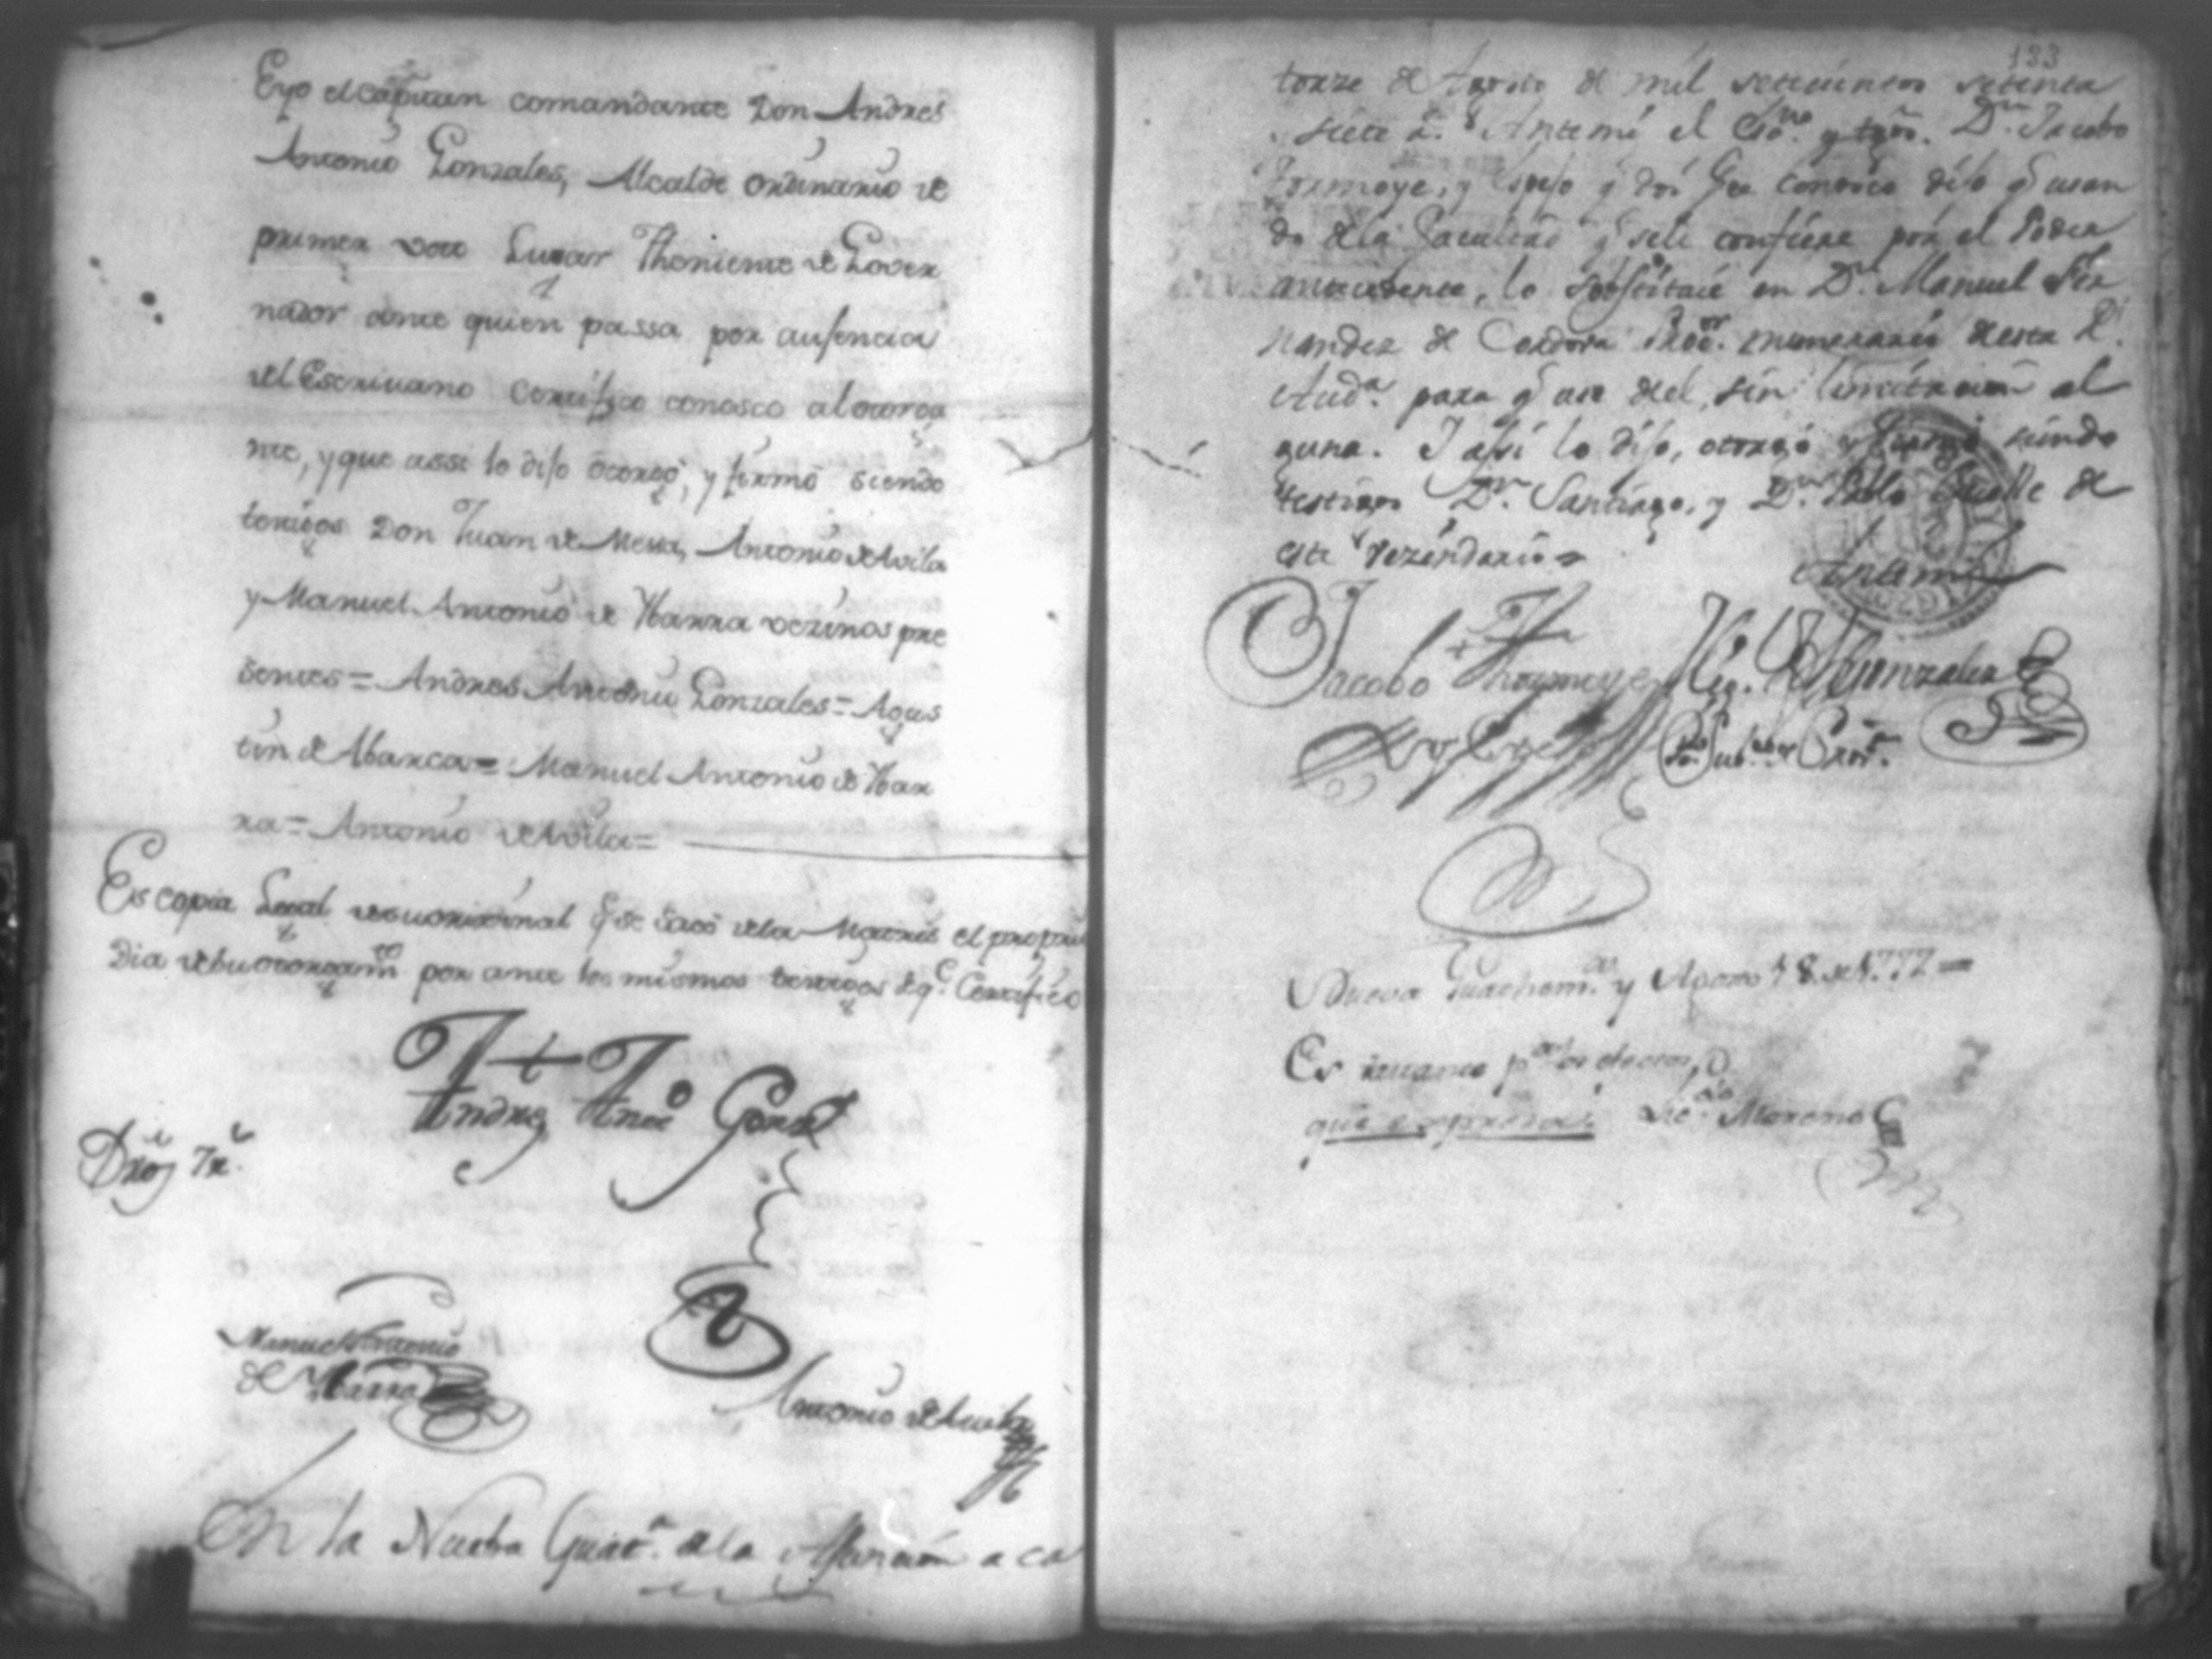 Eyo el capitan comandante Don Andres
Antonio Gonzales, Alcalde ordinario de
primer voto Lugar Theniente de Gover
nador ante quien passa por ausencia
del Escrivano certifico conosco al otorga
nte, y que assi lo dijo otorgó, y firmó siendo
testigos Don Juan de Messa, Antonio de Avila
y Manuel Antonio de Ybarra vezinos pre
sentes = Andres Antonio Gonzales = Agus
tin de Abarca = Manuel Antonio de Ybar
ra = Antonio de Avila =
Es copia Legal de su original q̃ se sacó de la Matris el propio
Dia de su otorgam.to por ante los mismos testigos de q.e Certifico
Andres Ant.o Gonz
Dros
Manuel Antonio
de Ybarra
Antonio de Avila
En la Nueba Guat.a de la Asuncion a ca
133
torze de Agosto de mil setecientos setenta
siete a.s Ante mi el Ess.no y tgos. D.n Jacobo
y dijo q̃ usan
do de la facultad q̃ se le confiere por el Poder
antecedente, lo sobstituie en D.n Manuel Fer
nandez de Cordova Proc.or numerario de esta R.l
Aud.a para q̃ use del, sin limitacion al
guna. I assi lo dijo, otorgó y firmó siendo
testigos D.n Santiago, y D.n Pablo de
este vezindario =
Ante mi
Jacobo
Gonzalez
Nueva Guathem.a y Agosto 18 de 1777 =
Es bastante p.a los efectos,
que expresa. Lic.do Moreno